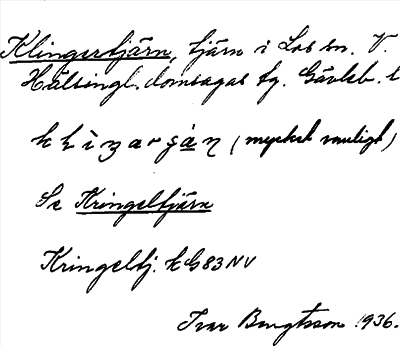 Klingertjärn, tjärn i Los sn. V.
Hälsingl. domsagas tg. Gävleb. l
(mycket vanligt)
Se Kringeltjärn
Kringeltj. kG83NV
Ivar Bengtsson 1936.